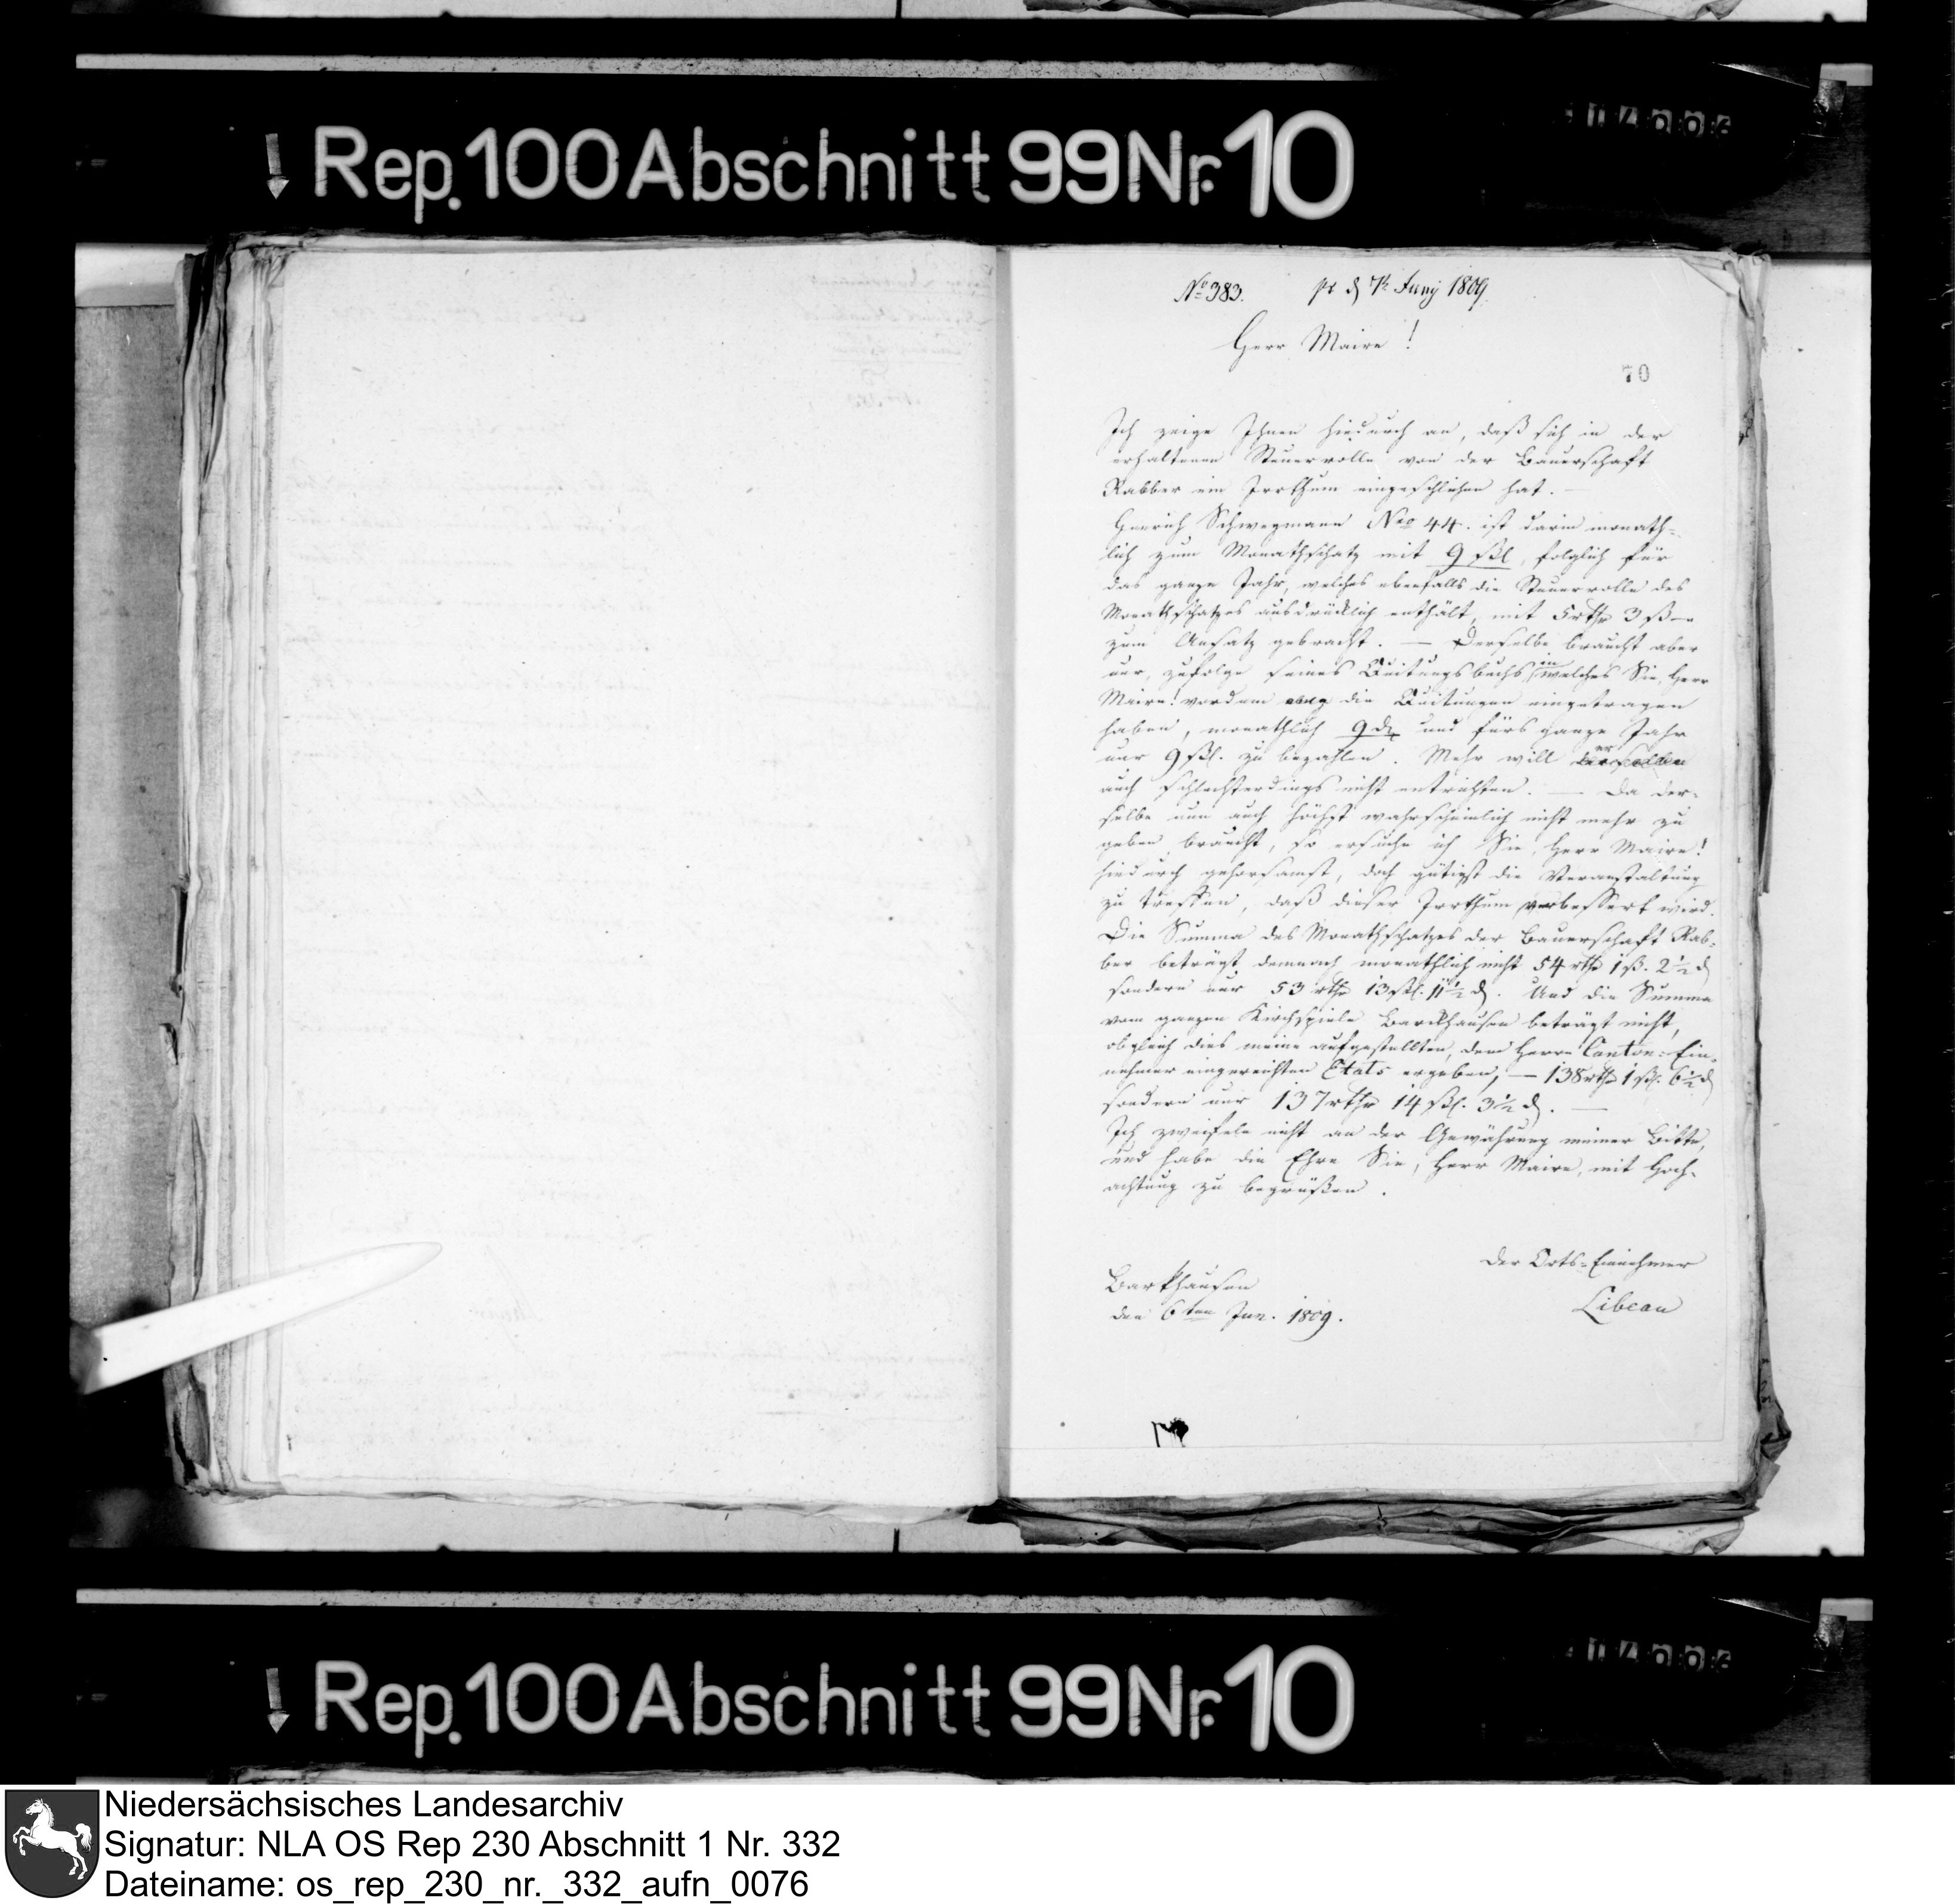 Rep. 100 Abschnitt 99 Nr. 10
No 383. pr d 7t Juny 1809.
Herr Maire!
70
Ich zeige Ihnen hiedurch an, daß sich in der
erhaltenen Steuerrolle von der Bauerschaft
Rabber ein Irrthum eingeschlichen hat. —
Henrich Schwegmann Nro 44. ist darin monath-
lich zum Monathschatz mit 9 ßl, folglich für
das ganze Jahr, welches ebenfalls die Steuerrolle des
Monathschatzes ausdrücklich enthält, mit 5 rthr 3 ß —
zum Ansatz gebracht. — Derselbe braucht aber
nur, zufolge seines Quitungsbuchs, in welches Sie, Herr
Maire! vordem die Quitungen eingetragen
haben, monathlich 9 d und fürs ganze Jahr
nur 9 ßl. zu bezahlen. Mehr will er derselbe
auch schlechterdings nicht entrichten. — Da der-
selbe nun auch höchst wahrscheinlich nicht mehr zu
geben braucht, so ersuche ich Sie, Herr Maire!
hiedurch gehorsamst, doch gütigst die Veranstaltung
zu treffen, daß dieser Irrthum verbessert wird.
Die Summa des Monathschatzes der Bauerschaft Rab-
ber beträgt demnach monathlich nicht 54 rthr 1 ß. 2½ d
sondern nur 53 rthr 13 ßl. 11½ d. Und die Summa
vom ganzen Kirchspiele Barckhausen beträgt nicht,
obgleich dies meine aufgestellten, dem Herrn Canton-Ein-
nehmer eingereichten Etats ergeben, — 138 rthr 1 ßl. 6½ d
sondern nur 137 rthr 14 ßl. 3½ d. —
Ich zweifele nicht an der Gewährung meiner Bitte,
und habe die Ehre Sie, Herr Maire, mit Hoch-
achtung zu begrüßen.
Der Orts-Einnehmer
Barkhausen
Libeau
den 6ten Jun. 1809.
Rep. 100 Abschnitt 99 Nr. 10
Niedersächsisches Landesarchiv
Signatur: NLA OS Rep 230 Abschnitt 1 Nr. 332
Dateiname: os_rep_230_nr._332_aufn_0076